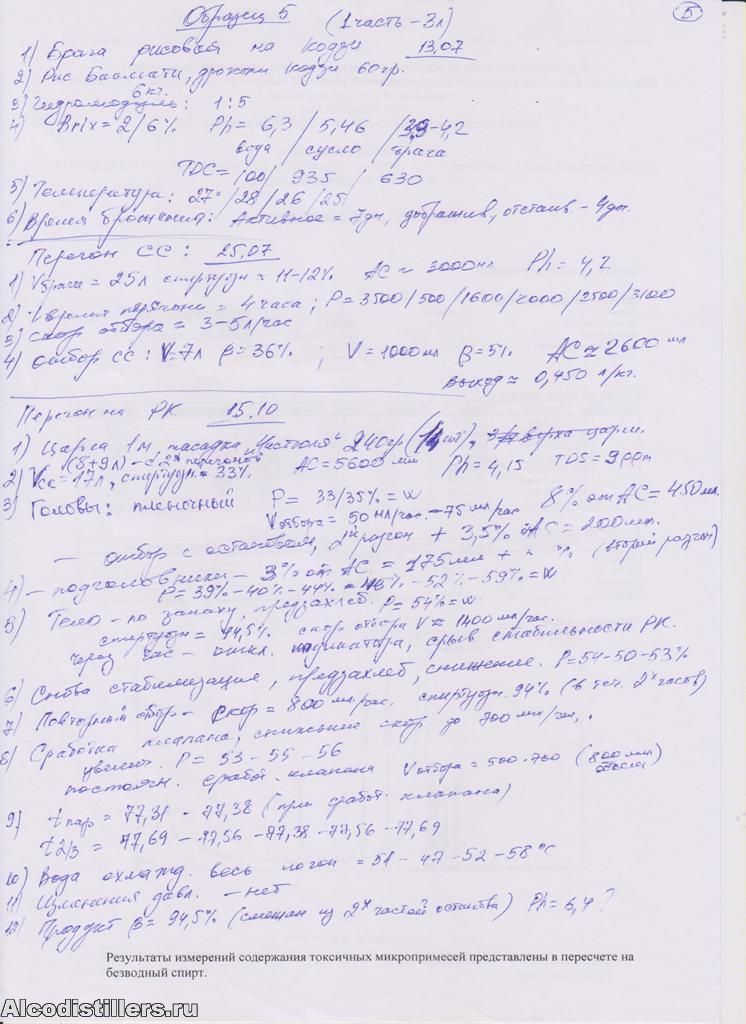 Образец 5 (1 часть – 3л) 5
1) Брага рисовая на кодзи 13.07
2) Рис Басмати, дрожжи кодзи 60гр.
6кг.
3) Гидромодуль: 1:5
4) Brix = 2/6% Ph = 6,3 / 5,46 / 3,9-4,2
вода / сусло / брага
TDC = 100 / 935 / 630
5) Температура: 27° / 28 / 26 / 25
6) Время брожения: Активное = 7дн, дображив, отстаив. - 4дн.
Перегон СС: 25.07
1) Vбрага = 25л спиртуозн ≈ 11-12% АС ≈ 3000мл Ph = 4,2
2) Время перегона = 4 часа; P = 3500/500/1600/2000/2500/3100
3) Скор отбора = 3-5л/час
4) отбор СС: V=7л β=36%; V=1000мл β=5% АС≈2600 мл
выход ≈ 0,450 л/кг.
Перегон на РК 15.10
1) Царга 1м, насадка "Чистюля" 240гр (14шт), царги.
(8+9л) - с 2х перегонов
2) Vсс = 17л, спиртуозн = 33% АС = 5600 мл Ph = 4,15 TDS = 9ppm
3) Головы: пленочный P = 33/35% = w
Vотбора = 50 мл/час. - 75 мл/час 8% от АС = 450мл.
— отбор с остановом, 2й разгон + 3,5% АС = 200мл.
4) - подголовники - 3% от АС = 175мл + (второй разгон)
P = 39% - 40% - 44% - 48% - 52% - 59% = w
5) Тело - по запаху, предзахлеб. P = 54% = w.
спиртуозн = 94,5% скор. отбора V ≈ 1400 мл/час.
через час - откл. индикатора, срыв стабильности РК.
6) Снова стабилизация, предзахлеб, снижение. P=54-50-53%
7) Повторный отбор - Скор = 800 мл/час. спиртуозн. 94% (в теч. 2х часов)
8) Сработка клапана, снижение скор до 700 мл/час,
увелич. P = 53 - 55 - 56
постоян. сработ. клапана Vотбора = 500-700 (800мл)
9) tпар = 77,31 - 77,38 (при сработ. клапана)
t2/3 = 77,69 - 77,56 - 77,38 - 77,56 - 77,69
10) Вода охлажд. весь погон = 51 - 47 - 52 - 58°С
11) Изменения давл. - нет
12) Продукт β = 94,5% (смешан из 2х частей останова) Ph = 6,4?
Результаты измерений содержания токсичных микропримесей представлены в пересчете на
безводный спирт.
Alcodistillers.ru